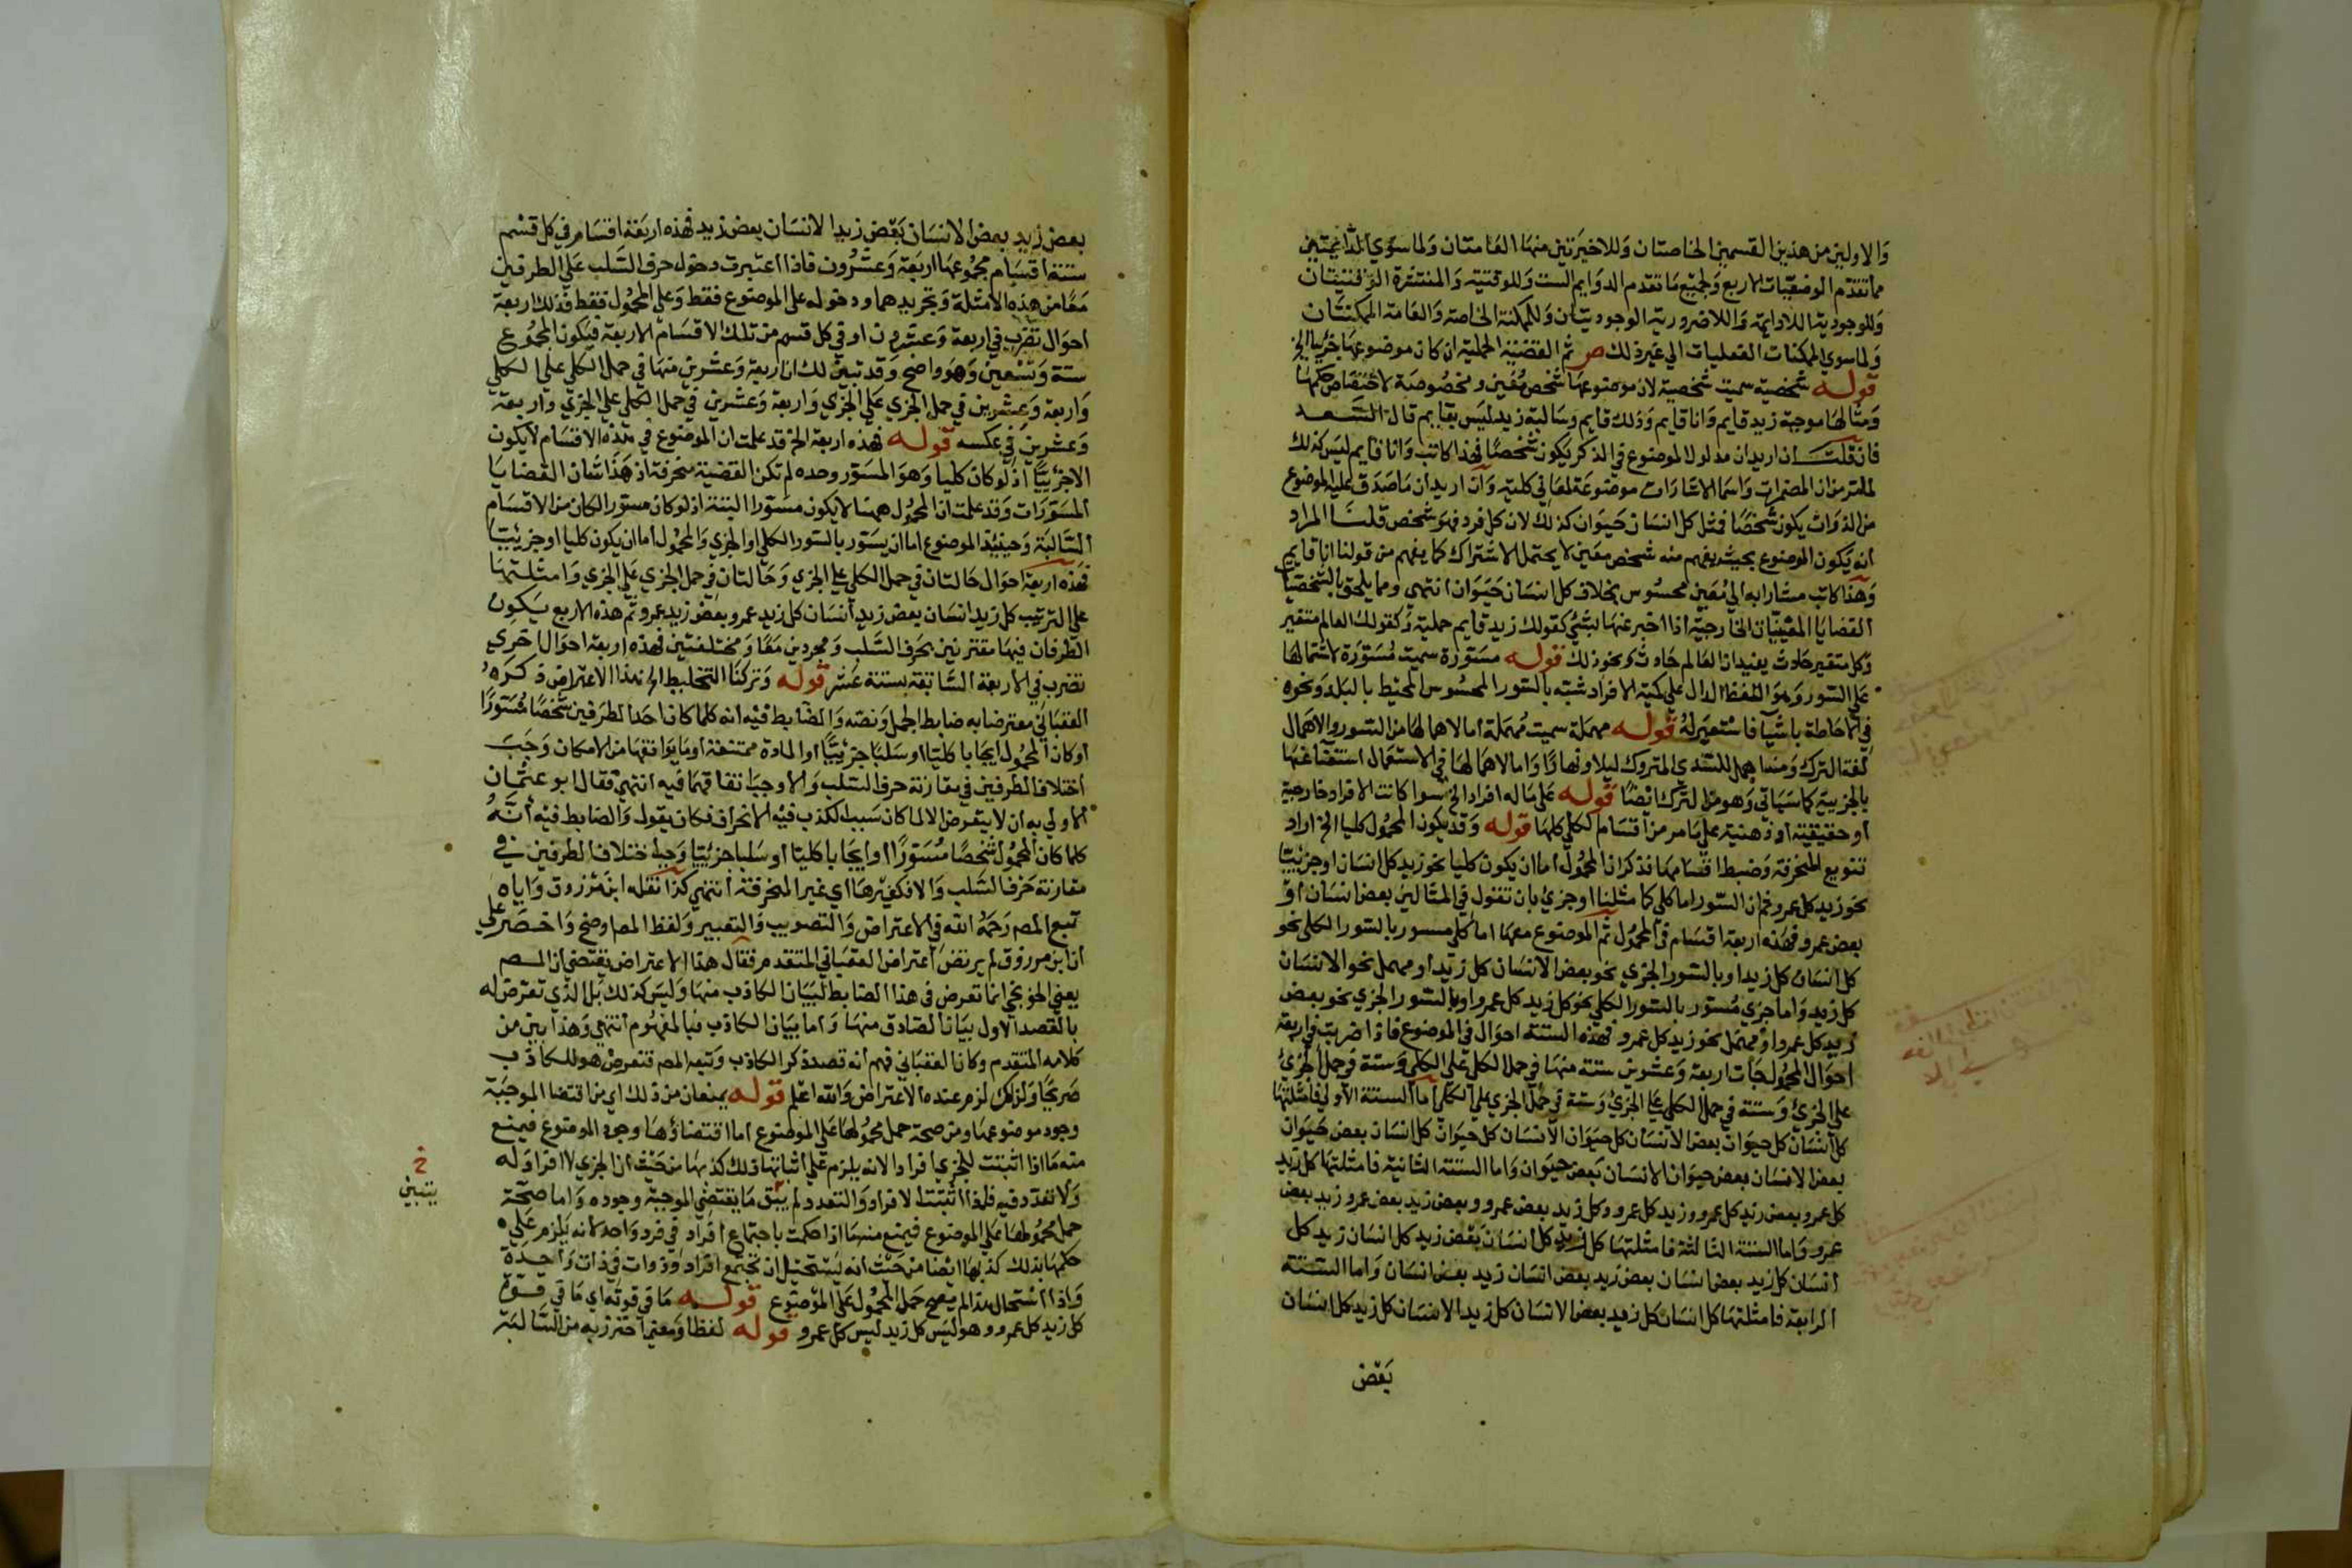 والاولين من هذين القسمين الخاصتان وللاخيرتين منها العامتان ولما سوي الدائمتين
مما تقدم الوصفيات الاربع ولجميع ما تقدم الدوايم الست وللوقتية والمنتشرة الوقتيتان
وللوجودية اللادايمة واللاضرورية الوجوديتان وللممكنة الخاصة والعامة الممكنتان
ولما سوي الممكنات الفعليات الي غير ذلك ص ثم القضية الحملية ان كان موضوعها جزئيا الخ
قوله شخصية سميت شخصية لان موضوعها شخص معين ومخصوصة لاختصاص حكمها
ومثالها موجبة زيد قايم وانا قايم وذلك قايم وسالبة زيد ليس بقايم قال السعد
فان قلت ان اريد ان مدلول الموضوع في الذكر يكون شخصا فهذا كاتب وانا قايم ليس كذلك
لما تقرر من ان المضمرات واسما الاشارات موضوعة لمعاني كلية وان اريد ان ما صدق عليه الموضوع
من الذوات يكون شخصا فمثل كل انسان حيوان كذلك لان كل فرد فهو شخص قلنا المراد
انه يكون الموضوع بحيث يفهم منه شخص معين لا يحتمل الاشتراك كما يفهم من قولنا انا قايم
وهذا كاتب مشارا به الي معين محسوس بخلاف كل انسان حيوان انتهي ومما يلحق بالشخصيات
القضايا المعينات الخارجية اذا اخبر عنها بشي كقولك زيد قايم حملية وكقولك العالم متغير
وكل متغير حادث يفيد ان العالم حادث ونحو ذلك قوله مسورة سميت مسورة لاشتمالها
علي السور وهو اللفظ الدال علي كمية الافراد شبه بالسور المحسوس المحيط بالبلد ونحوه
في الاحاطة باشيا فاستعير له قوله مهملة سميت مهملة اما لاهمالها من السور والاهمال
لغة الترك ومنه اهمل للشي المتروك ليلا ونهارا واما لاهمالها في الاستعمال استغناء عنها
بالجزيية كما سياتي وهو من الترك ايضا قوله علي ما له افراد الخ سوا كانت الافراد خارجية
او حقيقية او ذهنية علي ما مر من اقسام الكلي كلها قوله وقد يكون المحمول كليا الخ اراد
تنويع المنحرفة وضبط اقسامها فذكر ان المحمول اما ان يكون كليا نحو زيد كل انسان او جزئيا
نحو زيد كل عمرو ثم ان السور اما كلي كما مثلنا او جزي بان تقول في المثالين بعض انسان او
بعض عمرو فهذه اربعة اقسام في المحمول ثم الموضوع معها اما كلي مسور بالسور الكلي نحو
كل انسان كل زيد او بالسور الجزي نحو بعض الانسان كل زيد او مهمل نحو الانسان
كل زيد واما جزي مسور بالسور الكلي نحو كل زيد كل عمرو او بالسور الجزي نحو بعض
زيد كل عمرو او مهمل نحو زيد كل عمرو فهذه الستة احوال في الموضوع فاذا ضربت في اربعة
احوال المحمول جات اربعة وعشرين ستة منها في حمل الكلي علي الكلي وستة في حمل الجزئ
علي الجزئ وستة في حمل الكلي علي الجزئ وستة في حمل الجزي علي الكلي اما الستة الاولي فامثلتها
كل انسان كل حيوان بعض الانسان كل حيوان الانسان كل حيوان كل انسان بعض حيوان
بعض الانسان بعض حيوان الانسان بعض حيوان واما الستة الثانية فامثلتها كل زيد
كل عمرو بعض زيد كل عمرو وزيد كل عمرو وكل زيد بعض عمرو وبعض زيد بعض عمرو زيد بعض
عمرو واما الستة الثالثة فامثلتها كل زيد كل انسان بعض زيد كل انسان زيد كل
انسان كل زيد بعض انسان بعض زيد بعض انسان زيد بعض انسان واما الستة
الرابعة فامثلتها كل انسان كل زيد بعض الانسان كل زيد الانسان كل زيد كل انسان
بعض
بعض زيد بعض الانسان بعض زيد الانسان بعض زيد فهذه اربعة اقسام في كل قسم
ستة اقسام مجموعها اربعة وعشرون فاذا اعتبرت دخول حرف السلب علي الطرفين
معا من هذه الامثلة وتجريدهما ودخوله علي الموضوع فقط وعلي المحمول فقط فذلك اربعة
احوال تضرب في اربعة وعشرون او في كل قسم من تلك الاقسام الاربعة فيكون المجموع
ستة وتسعين وهو واضح وقد تبين لك ان اربعة وعشرين منها في حمل الكلي علي الكلي
واربعة وعشرين في حمل الجزي علي الجزي واربعة وعشرين في حمل الكلي علي الجزي واربعة
وعشرين في عكسه قوله فهذه اربعة الخ قد علمت ان الموضوع في هذه الاقسام لا يكون
الا جزئيا اذ لو كان كليا وهو المسور وحده لم تكن القضية منحرفة اذ هذا شان القضايا
المسورات وقد علمت ان المحمول ههنا لا يكون مسورا البتة اذ لو كان مسورا لكان من الاقسام
السالبة وحينيذ الموضوع اما ان يسور بالسور الكلي او الجزي والمحمول اما ان يكون كليا او جزئيا
فهذه اربعة احوال حالتان في حمل الكلي علي الجزي وحالتان في حمل الجزي علي الجزي وامثلتها
علي الترتيب كل زيد انسان بعض زيد انسان كل زيد عمرو بعض زيد عمرو ثم هذه الاربع يكون
الطرفان فيها مقترنين بحرف السلب ومجردين معا ومختلفتين فهذه اربعة احوال اخري
تضرب في الاربعة السابقة بستة عشر قوله وتركنا التخليط الخ هذا الاعتراض ذكره
العقباني معترضا به ضابط الجمل ونصه والضابط فيه انه كلما كان احد الطرفين شخصا مسورا
او كان المحمول ايجابا كليا او سلبا جزئيا او المادة ممتنعة او ما يوافقها من الامكان وجب
اختلاف الطرفين في مقارنة حرف السلب والا وجب اتفاقهما فيه انتهي فقال ابو عثمان
الاولي به ان لا يتعرض الا لما كان سبب الكذب فيه الانحراف فكان يقول والضابط فيه انه
كلما كان المحمول شخصا مسورا او ايجابا كليا او سلبا جزئيا وجب اختلاف الطرفين في
مقارنة حرف السلب والا فكغيرها اي غير المنحرفة انتهي كذا نقله ابن مرزوق واياه
تبع المص رحمه الله في الاعتراض والتصويب والتعبير ولفظ المص اوضح واخصر علي
ان ابن مرزوق لم يرتض اعتراض العقباني المتقدم فقال هذا الاعتراض يقتضي ان المص
يعني الخونجي انما تعرض في هذا الضابط لبيان الكاذب منها وليس كذلك بل الذي تعرض له
بالقصد الاول بيان الصادق منها واما بيان الكاذب فبالمفهوم انتهي وهذا بين من
كلامه المتقدم وكان العقباني فهم انه قصد ذكر الكاذب وتبعه المص فتعرض هو للكاذب
صريحا ولذلك لزم عنده الاعتراض والله اعلم قوله يمنعان من ذلك اي من اقتضا الموجبة
وجود موضوعها ومن صحة حمل محمولها علي الموضوع اما اقتضاؤها وجود الموضوع فيمنع
منه ما اذا اثبتت للجزي افرادا لانه يلزم علي اثباتها ذلك كذبها من حيث ان الجزي لا افراد له
ولا تعدد فيه فلما اثبتت الافراد والتعدد لم يبق ما يقتضي الموجبة وجوده واما صحة
خ
يتبين
حمل محمولها علي الموضوع فيمنع منها اذا حكمت باجتماع افراد في فرد واحد لانه يلزم علي
حكمها بذلك كذبها ايضا من حيث انه يستحيل ان تجتمع افراد وذوات في ذات واحدة
واذا استحال هذا لم يصح حمل المحمول علي الموضوع قوله ما في قوته اي ما في قوة
كل زيد كل عمرو وهو ليس كل زيد ليس كل عمرو قوله لفظا ومعني احترز به من السالبة